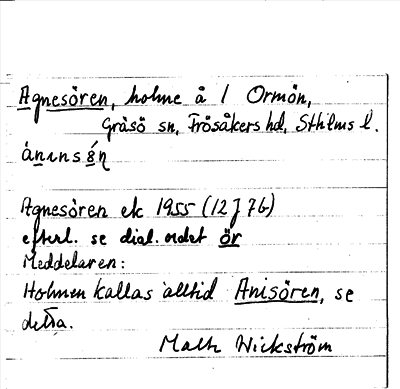 Agnesören, holme å / Ormön,
Gräsö sn, Frösåkers hd, Sthlms l.
ánınsǿ̣n
Agnesören ek 1955 (12 J 7b)
efterl. se dial. ordet ör
Meddelaren:
Holmen kallas alltid Anisören, se
detta.
Mats Wickström